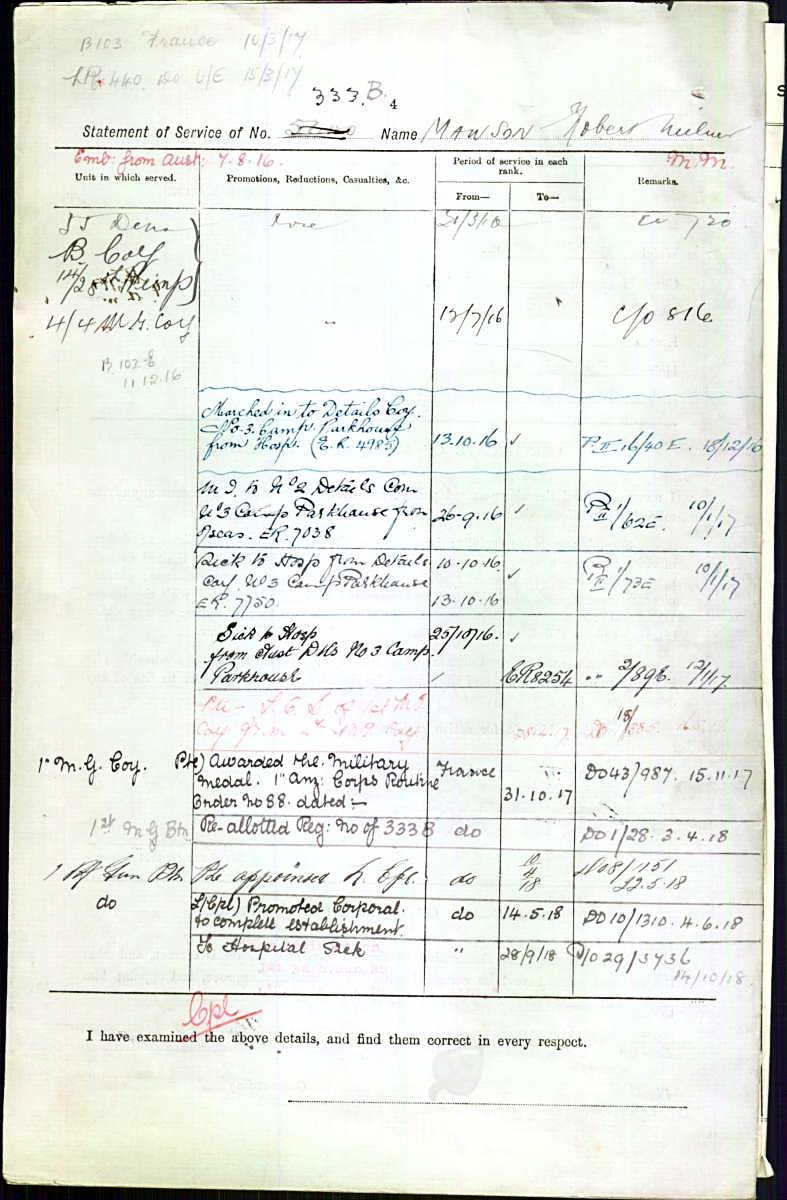 B103 France 10/3/17
440 Do 15/3/17
333.B.
4
Statement of Service of No. Name MAWSON Robert Milner
Emb: from Aust: 7.8.16. M.M.
Unit in which served. Promotions, Reductions, Casualties, &c. Period of service in each rank. Remarks.
From— To—
B Coy
4/4 M G. Coy 12/7/16 C/o 816
B 103
11.12.16
Marched in to Details Coy.
No. 3. Camp. Parkhouse
from Hosp. (E.R. 4985) 13.10.16 P. II 16/40 E. 18/12/16
M. I. to No 2 Details Com
No 3 Camp Parkhouse from
ER. 7038 26-9-16 P II 1/62E. 10/1/17
Sick to Hosp from Details 10-10-16.
Coy. No 3 Camp Parkhouse P II 1/73E 10/1/17
ER. 7750. 13-10-16
Sick to Hosp 25/10/16.
from Aust Dtls No 3 Camp.
Parkhouse ER8254 " 2/89E. 12/1/17
Pte
1st M.G. Coy. Pte) Awarded the Military France
Medal. 1st Anz: Corps Routine DO43/987. 15.11.17
Order No 88. dated:- 31.10.17
1st M G Btn Re-allotted Reg: No of 333 B do DO1/28. 3.4.18
Pte appointed L. Cpl. do 22.5.18
do L/Cpl) Promoted Corporal. do 14.5.18 DO10/1310. 4.6.18
to complete establishment.
To Hospital Sick " 28/9/18 29/3736
14/10/18.
Cpl
I have examined the above details, and find them correct in every respect.